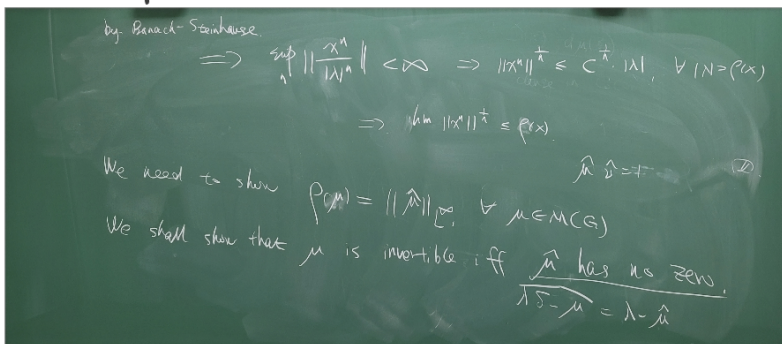 by Banach-Steinhause.
⟹ sup_n ||x^n/|λ|^n|| < ∞ ⟹ ||x^n||^{1/n} ≤ C^{1/n}·|λ|, ∀ |λ|>ρ(x)
⟹ lim ||x^n||^{1/n} ≤ ρ(x)
We need to show ρ(μ) = ||μ̂||_{L^∞}, ∀ μ∈M(G)
We shall show that μ is invertible iff μ̂ has no zero.
\widehat{λδ-μ} = λ-μ̂